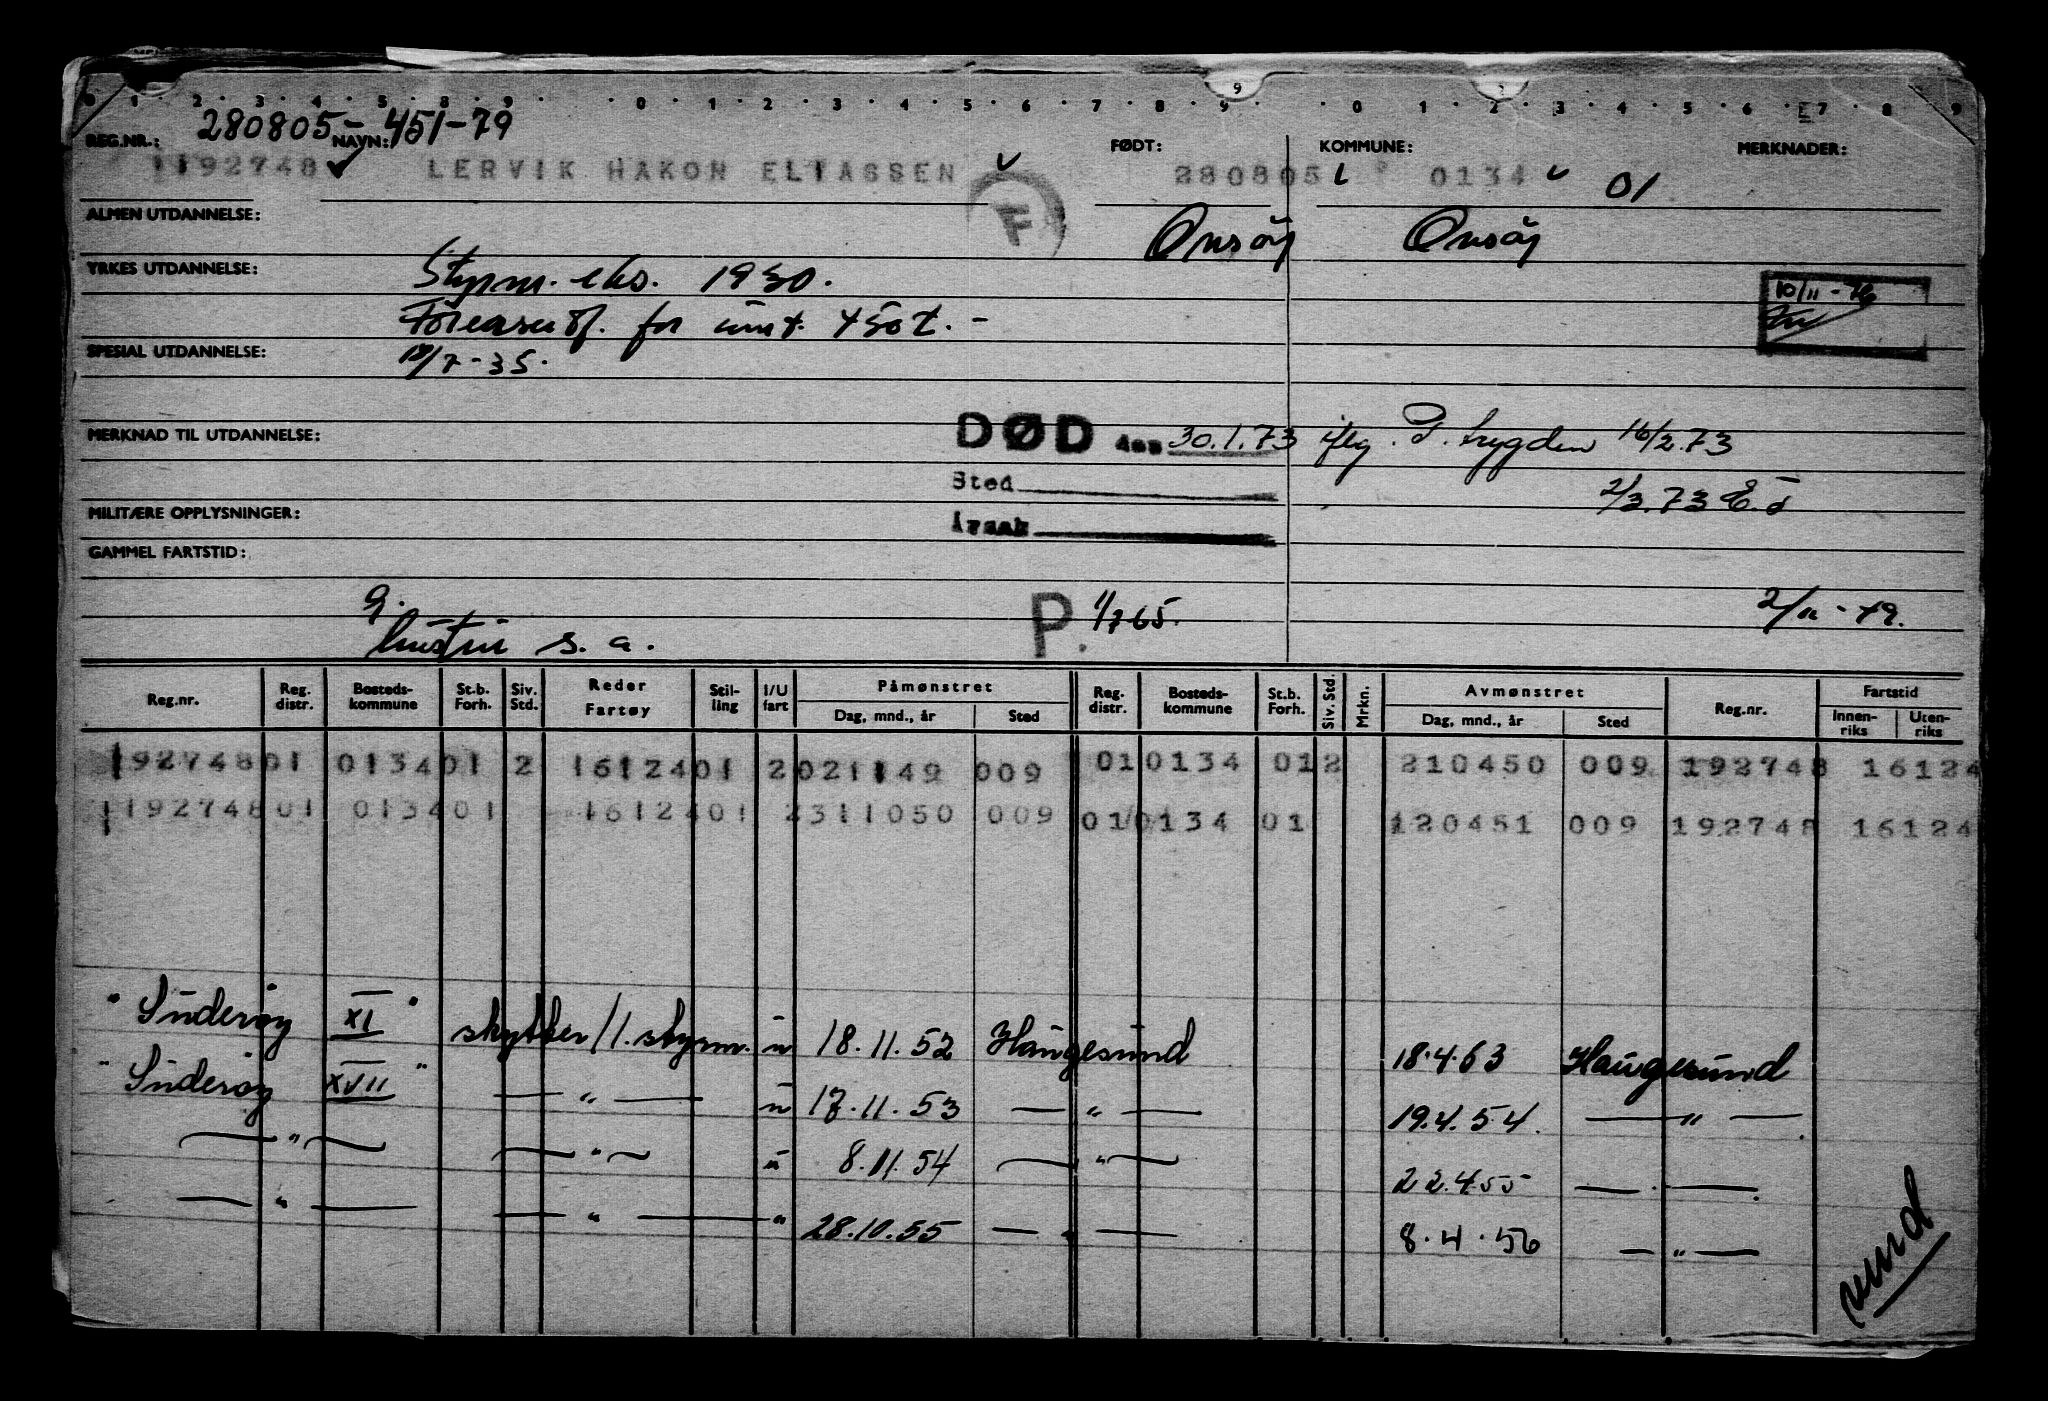 0 · 1 · 2 · 3 · 4 · 5 · 8 · 9 · · 0 · 1 · 2 · 3 · 4 · 5 · 6 · 7 · 8 · 9 · · 0 · 1 · 2 · 3 · 4 · 5 · 6 · 7 · 8 · 9
280805-451-79
REG.NR.: NAVN: FØDT: KOMMUNE: MERKNADER:
1192748 LERVIK HAKON ELIASSEN 280805 0134 01
F
ALMEN UTDANNELSE:
Onsöy Onsöy
YRKES UTDANNELSE: Styrm. eks. 1930.
10/11-76
for 450 t. -
SPESIAL UTDANNELSE: /7-35.
MERKNAD TIL UTDANNELSE: DØD den 30.1.73 ifлg. P. trygden 16/2.73
Sted 2/3.73 E.ö
MILITÆRE OPPLYSNINGER: Årsak
GAMMEL FARTSTID:
g. P. 1/7 65. 2/11-49.
s. a.
Reg.nr. Reg. distr. Bosteds-kommune St.b. Forh. Siv. Std. Reder Fartøy Stil-ling I/U fart Påmønstret Dag, mnd., år Sted Reg. distr. Bosteds-kommune St.b. Forh. Siv. Std. Mrkn. Avmønstret Dag, mnd., år Sted Reg.nr. Fartstid Innen-riks Uten-riks
19274801 013401 2 1612401 2021149 009 010134 012 210450 009 192748 16124
119274801 013401 1612401 2311050 009 010134 01 120451 009 192748 16124
"Süderøy XI" skytter/1. styrm. ü 18.11.52 Haugesund 18.4.53 Haugesund
"Süderøy XVII" — " — ü 17.11.53 — " — 19.4.54. — " —
— " — — " — ü 8.11.54 — " — 22.4.55 — " —
— " — — " — " 28.10.55 — " — 8.4.56 — " —
vend